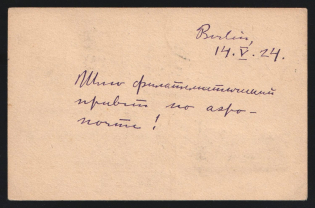 Berlin,
14.V.24.
Шлю филателистический
привет по аэро-
почте!